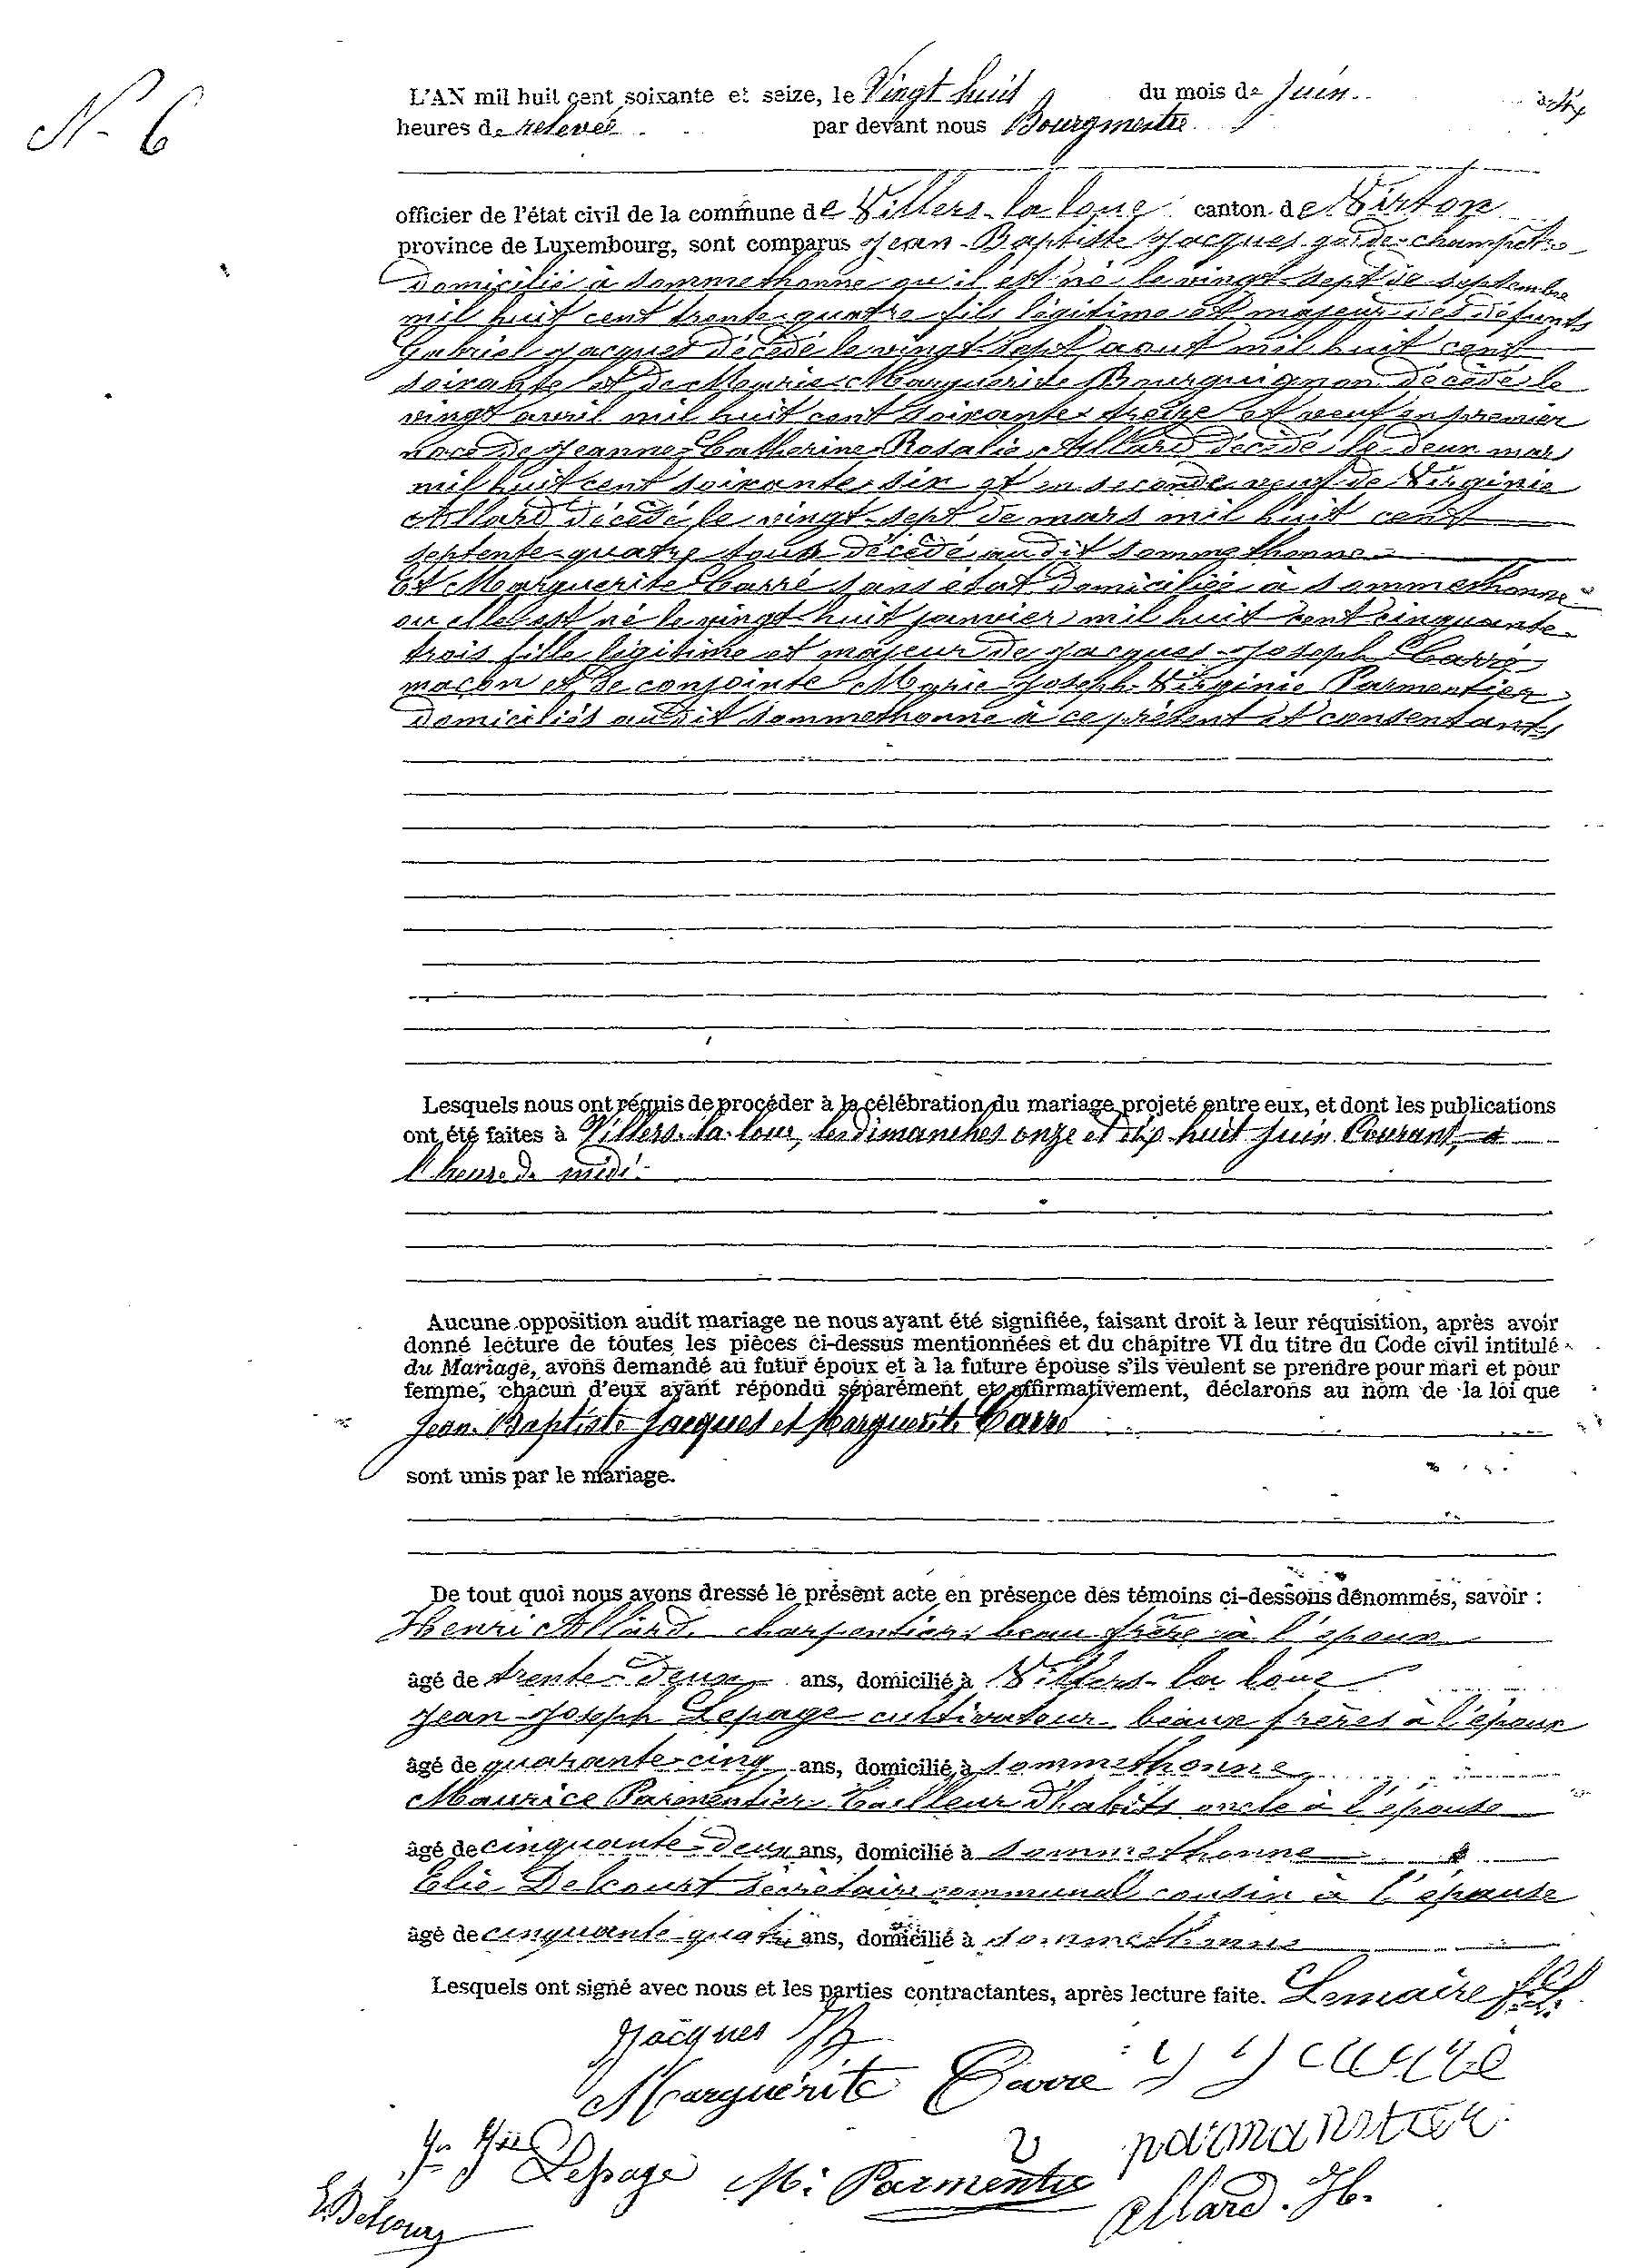 N. 6
L'AN mil huit cent soixante et seize, le Vingt huit du mois de Juin
heures de relevée par devant nous Bourgmestre
officier de l'état civil de la commune de Villers-la-loue canton de Virton
province de Luxembourg, sont comparus Jean-Baptiste Jacques garde-champêtre
domicilié à Sommethonne ou il est né le vingt-sept de septembre
mil huit cent trente-quatre fils légitime et majeur des défunts
Gabriel Jacques décédé le vingt-sept aout mil huit cent
soixante et de Marie-Marguerite Bourguignon décédé le
vingt avril mil huit cent soixante-treize et veuf en premier
noce de Jeanne-Catherine-Rosalie Allard décédé le deux mars
mil huit cent soixante-six et en seconde noce de Virginie
Allard décédé le vingt-sept de mars mil huit cent
septente-quatre tous décédé audit Sommethonne
Et Marguerite Carré sans état domiciliée à Sommethonne
ou elle est né le vingt-huit janvier mil huit cent cinquante-
trois fille légitime et majeur de Jacques-Joseph Carré
maçon et de conjointe Marie-Joseph-Virginie Parmentier
domiciliés audit Sommethonne à ce présent et consentants
Lesquels nous ont réquis de procéder à la célébration du mariage projeté entre eux, et dont les publications
ont été faites à Villers-la-loue, les dimanches onze et dix-huit Juin Courant, a
l'heure de midi.
Aucune opposition audit mariage ne nous ayant été signifiée, faisant droit à leur réquisition, après avoir
donné lecture de toutes les pièces ci-dessus mentionnées et du chapitre VI du titre du Code civil intitulé
du Mariage, avons demandé au futur époux et à la future épouse s'ils veulent se prendre pour mari et pour
femme, chacun d'eux ayant répondu séparément et affirmativement, déclarons au nom de la loi que
Jean-Baptiste Jacques et Marguerite Carré
sont unis par le mariage.
De tout quoi nous avons dressé le présent acte en présence des témoins ci-dessous dénommés, savoir :
Henri Allard, charpentier, beau frère à l'époux
âgé de trente-deux ans, domicilié à Villers-la-loue
Jean-Joseph Lepage cultivateur beaux frères à l'époux
âgé de quarante-cinq ans, domicilié à Sommethonne
Maurice Parmentier Tailleur d'habits oncle à l'épouse
âgé de cinquante-deux ans, domicilié à Sommethonne
Elie Delcourt secrétaire communal cousin à l'épouse
âgé de cinquante-quatre ans, domicilié à Sommethonne
Lesquels ont signé avec nous et les parties contractantes, après lecture faite. Lemaire
Jacques JB
Marguérite Carré J J Carré
Jn Jh Lepage M. Parmentier V parmantier
E. Delcourt Allard. H.